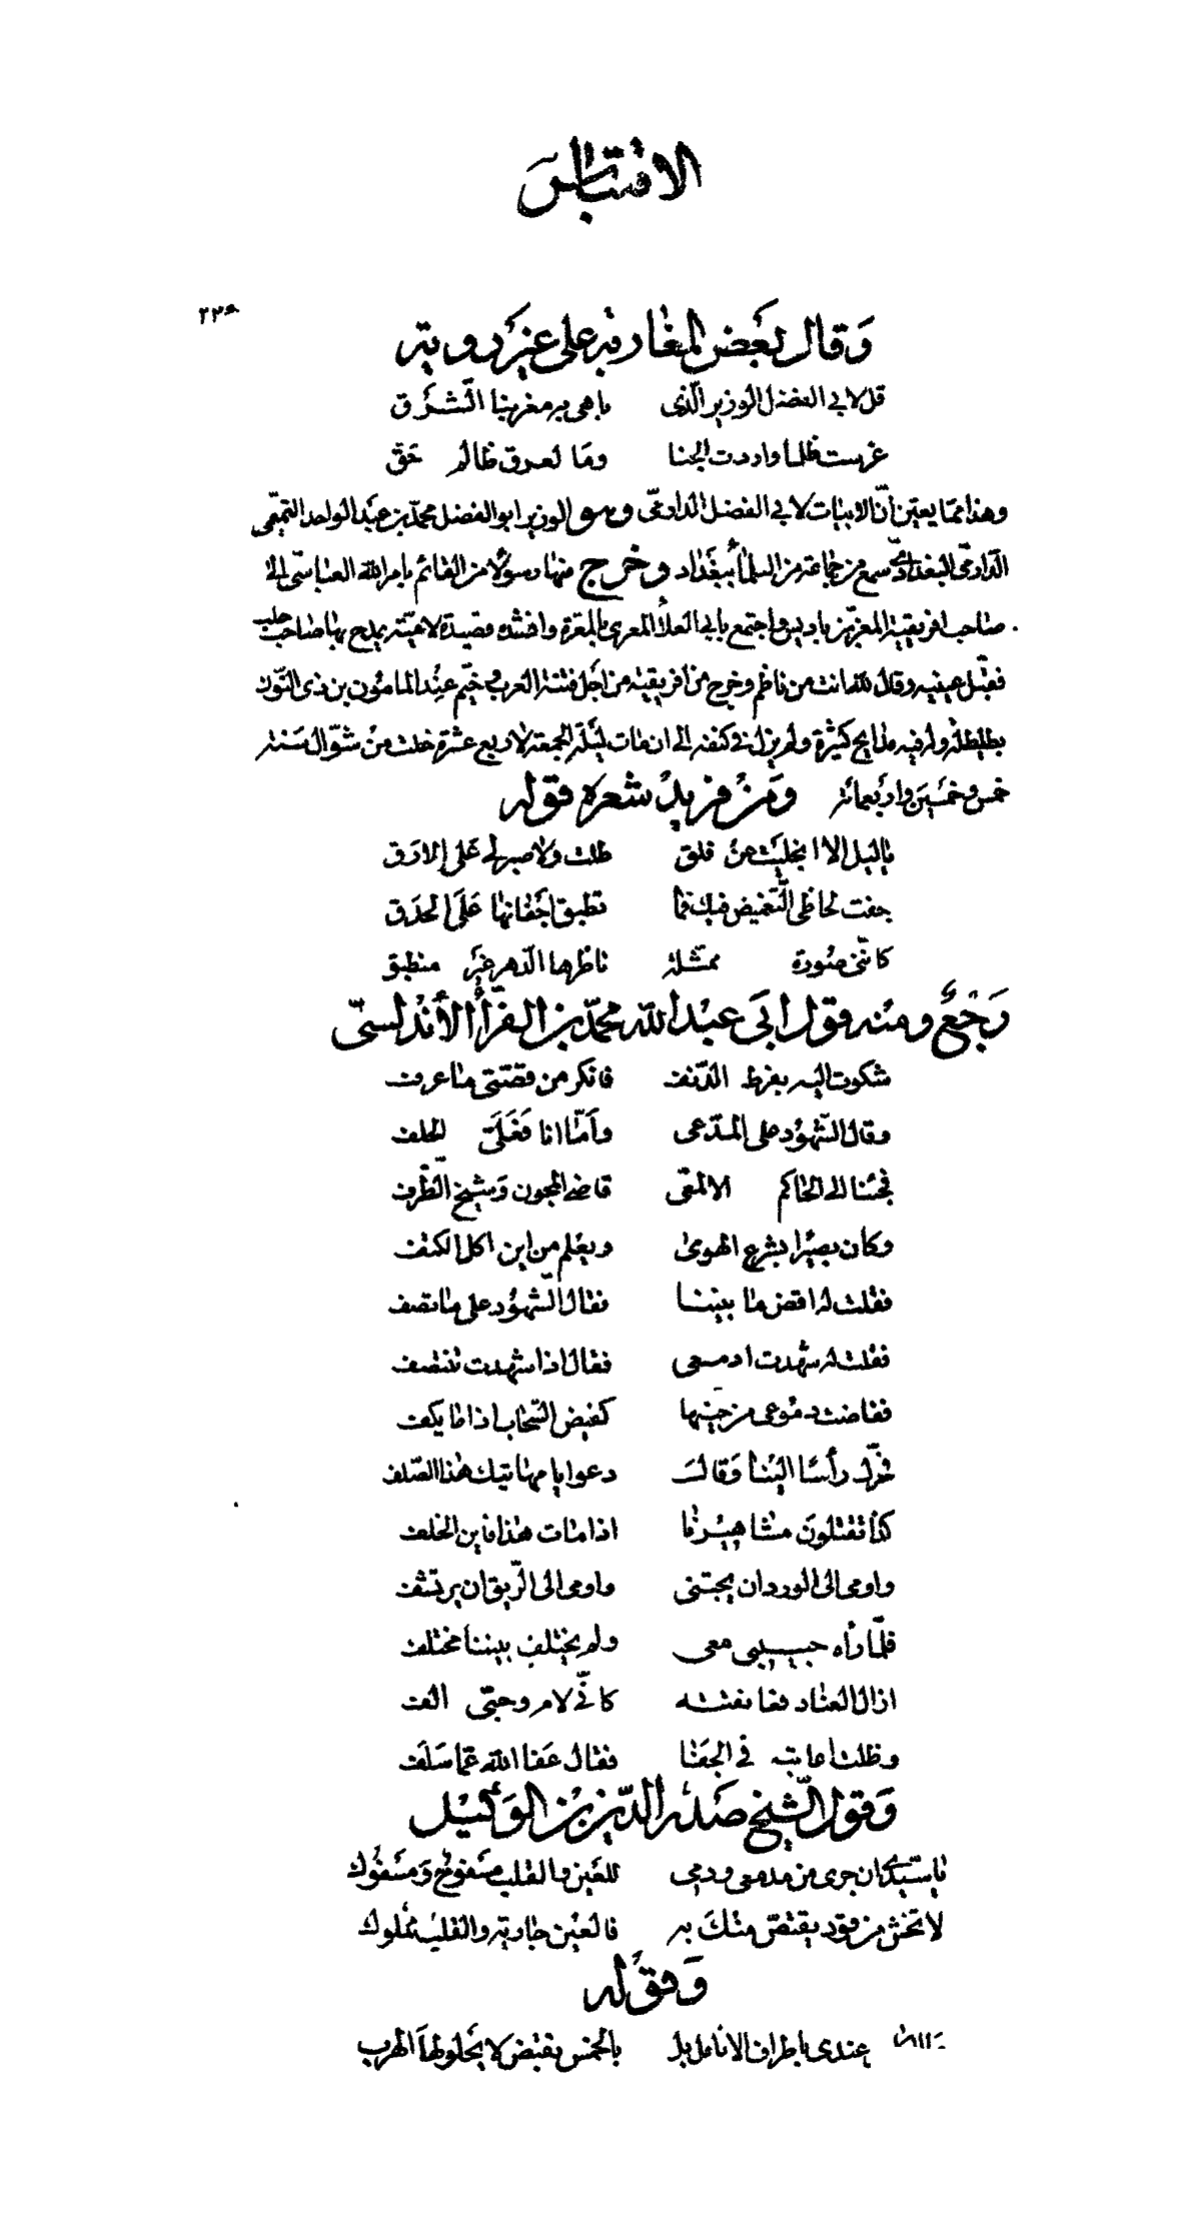 الاقتباس
٢٢٥
وقال بعض المغاربة على غير رويه
قل لابي الفضل الوزير الذي باهى به مغربنا الشرق
غرست ظلما واردت الجنا وما لعرق ظالم حق
وهذا مما يعين أن الابيات لابي الفضل الدارمي وهو الوزير ابو الفضل محمد بن عبد الواحد التميمي
الدارمي البغدادي سمع من جماعة من العلماء ببغداد وخرج منها رسولا من القائم بامر الله العباسي الى
صاحب افريقية المعز بن باديس واجتمع بابي العلاء المعري بالمعرة وانشده قصيدة لامية يمدح بها صاحب حلب
فقبل عينيه وقال لله انت من ناظم وخرج من افريقية من اجل فتنة العرب وخيم عند المامون بن ذى النون
بطليطلة وله فيه مدايح كثيرة ولم يزل في كنفه الى ان مات ليلة الجمعة لاربع عشرة خلت من شوال سنة
خمس وخمسين واربعمائة ومن فريد شعره قوله
يا ليل الا انجليت عن فلق طلت ولا صبر لي على الارق
جفت لحاظي التغميض فيك فما تطبق اجفانها على الحدق
كانني صورة ممثلة ناظرها الدهر غير منطبق
رجع ومنه قول ابي عبد الله محمد بن الفراء الأندلسي
شكوت اليه بفرط الدنف فانكر من قصتي ما عرف
وقال الشهود على المدعى وأما انا فعلي الحلف
فجئنا الى الحاكم الالمعي قاضي المجون وشيخ الظرف
وكان بصيرا بشرع الهوى ويعلم من اين اكل الكتف
فقلت له اقض ما بيننا فقال الشهود على ما تصف
فقلت له شهدت ادمعى فقال اذا شهدت تنتصف
ففاضت دموعى من حينها كفيض السحاب اذا ما يكف
فحرك رأسا الينا وقال دعوا يا مهاتيك هذا الصلف
كذا تقتلون مشاهيرنا اذا مات هذا فاين الخلف
واومى الى الورد ان يجتنى واومى الى الريق ان يرتشف
فلما رأه حبيبي معى ولم يختلف بيننا مختلف
ازال العناد فعانقته كاني لام وحبي الف
وظلت اعاتبه في الجفا فقال عفا الله عما سلف
وقول الشيخ صدر الدين بن الوكيل
يا سيدي ان جرى من مدمعى ودمى للعين والقلب مسفوح ومسفوك
لا تخش من قود يقتص منك به فالعين جارية والقلب مملوك
وقوله
عندى باطراف الانامل بل بالخمس تقبض لا يحلو لها الهرب